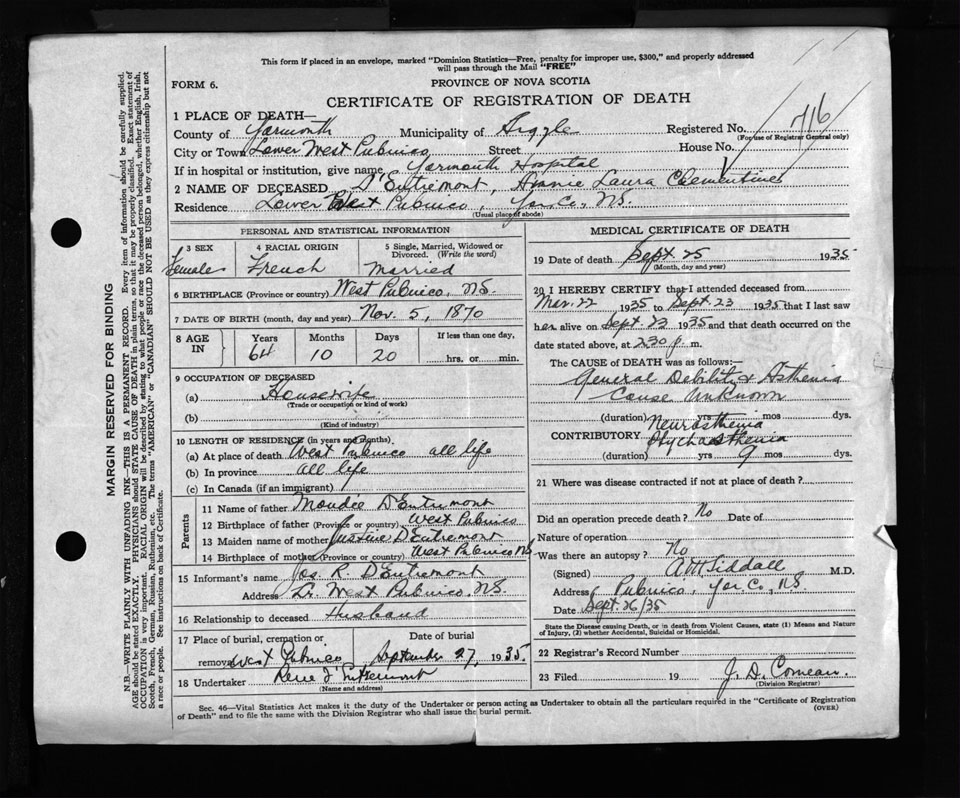 This form if placed in an envelope, marked "Dominion Statistics—Free, penalty for improper use, $300," and properly addressed
will pass through the Mail "FREE"
FORM 6.
PROVINCE OF NOVA SCOTIA
CERTIFICATE OF REGISTRATION OF DEATH
716
1 PLACE OF DEATH—
County of Yarmouth Municipality of Argyle Registered No.
(For use of Registrar General only)
City or Town Lower West Pubnico Street House No.
If in hospital or institution, give name Yarmouth Hospital
2 NAME OF DECEASED D'Entremont, Annie Laura Clementine
Residence Lower West Pubnico, Yar. Co., N.S.
(Usual place of abode)
PERSONAL AND STATISTICAL INFORMATION
3 SEX 4 RACIAL ORIGIN 5 Single, Married, Widowed or
Divorced. (Write the word)
Female French Married
6 BIRTHPLACE (Province or country) West Pubnico, N.S.
7 DATE OF BIRTH (month, day and year) Nov. 5, 1870
8 AGE IN Years Months Days If less than one day,
64 10 20 hrs. or min.
9 OCCUPATION OF DECEASED
(a) Housewife
(Trade or occupation or kind of work)
(b)
(Kind of industry)
10 LENGTH OF RESIDENCE (in years and months).
(a) At place of death West Pubnico all life
(b) In province all life
(c) In Canada (if an immigrant)
Parents
11 Name of father D'Entremont
12 Birthplace of father (Province or country) West Pubnico
13 Maiden name of mother Justine D'Entremont
14 Birthplace of mother (Province or country) West Pubnico N.S.
15 Informant's name Jos. R. D'Entremont
Address Lr. West Pubnico, N.S.
16 Relationship to deceased Husband
17 Place of burial, cremation or Date of burial
removal West Pubnico September 27, 1935.
18 Undertaker Rene D'Entremont
(Name and address)
MEDICAL CERTIFICATE OF DEATH
19 Date of death Sept 25 1935
(Month, day and year)
20 I HEREBY CERTIFY that I attended deceased from
Mar. 22 1935 to Sept 23 1935 that I last saw
her alive on Sept. 23 1935 and that death occurred on the
date stated above, at 2.30 p. m.
The CAUSE OF DEATH was as follows:—
General Debility & Asthenia
Cause Unknown
(duration) yrs mos dys.
Neurasthenia
CONTRIBUTORY Psychasthenia
(duration) yrs 9 mos dys.
21 Where was disease contracted if not at place of death?
Did an operation precede death? No Date of
Nature of operation
Was there an autopsy? No
(Signed) A M Siddall M.D.
Address Pubnico, Yar. Co., N.S.
Date Sept. 26/35
State the Disease causing Death, or in death from Violent Causes, state (1) Means and Nature
of Injury, (2) whether Accidental, Suicidal or Homicidal.
22 Registrar's Record Number
23 Filed 19 J. D. Comeau
(Division Registrar)
Sec. 46—Vital Statistics Act makes it the duty of the Undertaker or person acting as Undertaker to obtain all the particulars required in the "Certificate of Registration
of Death" and to file the same with the Division Registrar who shall issue the burial permit.
(OVER)
MARGIN RESERVED FOR BINDING
N.B.—WRITE PLAINLY WITH UNFADING INK—THIS IS A PERMANENT RECORD. Every item of information should be carefully supplied.
AGE should be stated EXACTLY. PHYSICIANS should STATE CAUSE OF DEATH in plain terms, so that it may be properly classified. Exact statement of
OCCUPATION is very important. RACIAL ORIGIN will be described by stating to what people or race the deceased person belonged, whether English, Irish,
Scotch, French, German, Russian, Ruthenian, etc. The terms "AMERICAN" or "CANADIAN" SHOULD NOT BE USED as they express citizenship but not
a race or people. See instructions on back of Certificate.